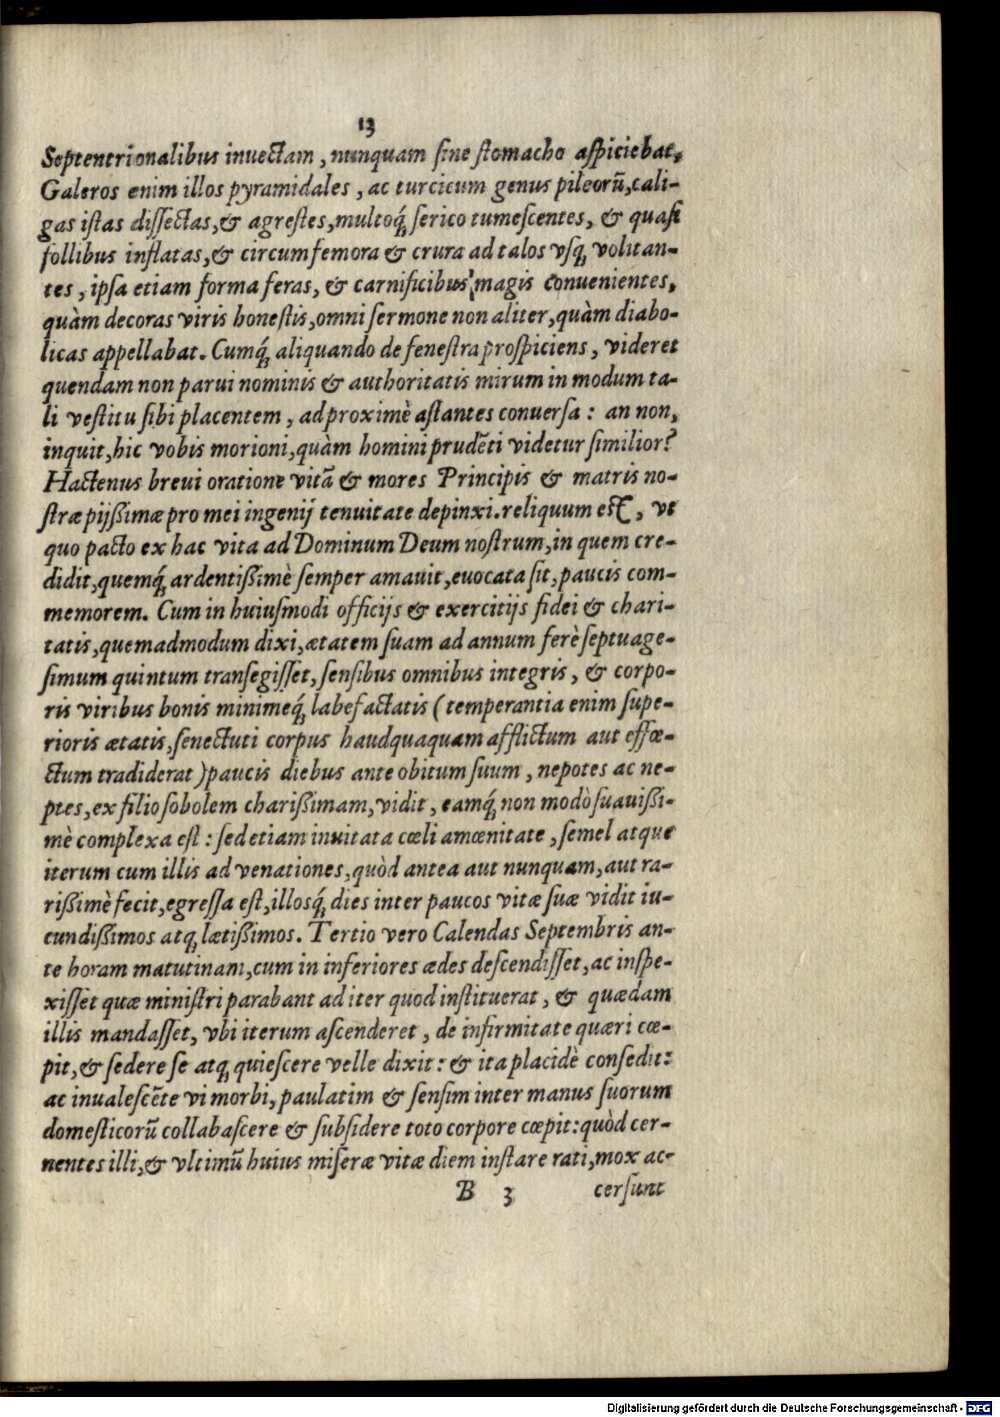 13
Septentrionalibus inuectam, nunquam sine stomacho aspiciebat,
Galeros enim illos pyramidales, ac turcicum genus pileorũ, cali-
gas istas dissectas, & agrestes, multoq́; serico tumescentes, & quasi
follibus inflatas, & circum femora & crura ad talos vsq; volitan-
tes, ipsa etiam forma feras, & carnificibus magis conuenientes,
quàm decoras viris honestis, omni sermone non aliter, quàm diabo-
licas appellabat. Cumq́; aliquando de fenestra prospiciens, videret
quendam non parui nominis & authoritatis mirum in modum ta-
li vestitu sibi placentem, ad proximè astantes conuersa: an non,
inquit, hic vobis morioni, quàm homini prudẽti videtur similior?
Hactenus breui oratione vitã & mores Principis & matris no-
stræ pijssimæ pro mei ingenij tenuitate depinxi. reliquum est, vt
quo pacto ex hac vita ad Dominum Deum nostrum, in quem cre-
didit, quemq́; ardentissimè semper amauit, euocata sit, paucis com-
memorem. Cum in huiusmodi officijs & exercitijs fidei & chari-
tatis, quemadmodum dixi, ætatem suam ad annum ferè septuage-
simum quintum transegisset, sensibus omnibus integris, & corpo-
ris viribus bonis minimeq́; labefactatis (temperantia enim supe-
rioris ætatis, senectuti corpus haudquaquam afflictum aut effœ-
ctum tradiderat) paucis diebus ante obitum suum, nepotes ac ne-
ptes, ex filio sobolem charissimam, vidit, eamq́; non modò suauissi-
mè complexa est: sed etiam inuitata cœli amœnitate, semel atque
iterum cum illis ad venationes, quòd antea aut nunquam, aut ra-
rissimè fecit, egressa est, illosq́; dies inter paucos vitæ suæ vidit iu-
cundissimos atq; lætissimos. Tertio vero Calendas Septembris an-
te horam matutinam, cum in inferiores ædes descendisset, ac inspe-
xisset quæ ministri parabant ad iter quod instituerat, & quædam
illis mandasset, vbi iterum ascenderet, de infirmitate quæri cœ-
pit, & sedere se atq; quiescere velle dixit: & ita placidè consedit:
ac inualescẽte vi morbi, paulatim & sensim inter manus suorum
domesticorũ collabascere & subsidere toto corpore cœpit: quòd cer-
nentes illi, & vltimũ huius miseræ vitæ diem instare rati, mox ac-
B 3 cersunt
Digitalisierung gefördert durch die Deutsche Forschungsgemeinschaft - DFG